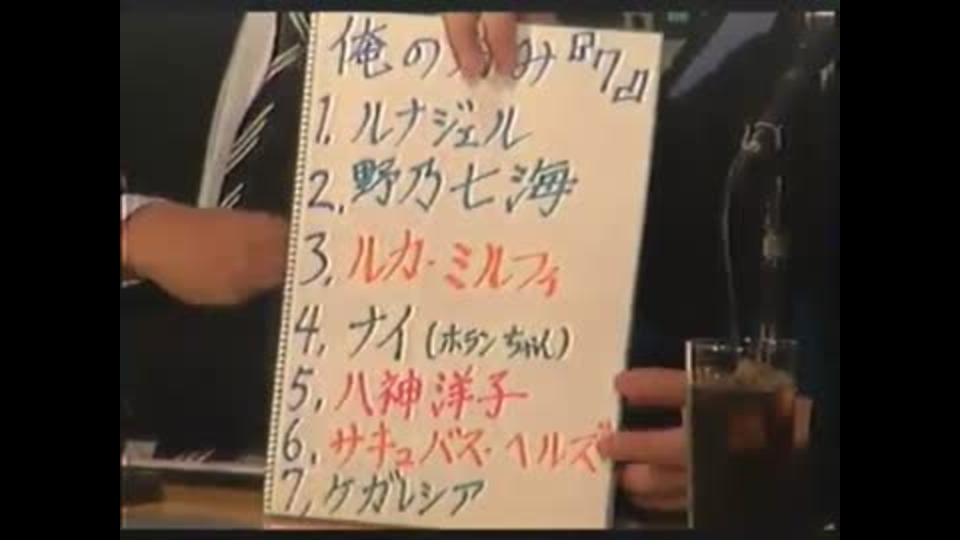 俺の み『7』
1. ルナジェル
2. 野乃七海
3. ルカ・ミルフィ
4. ナイ(ホランちゃん)
5. 八神洋子
6. サキュバス・ヘルズ
7. ケガレシア